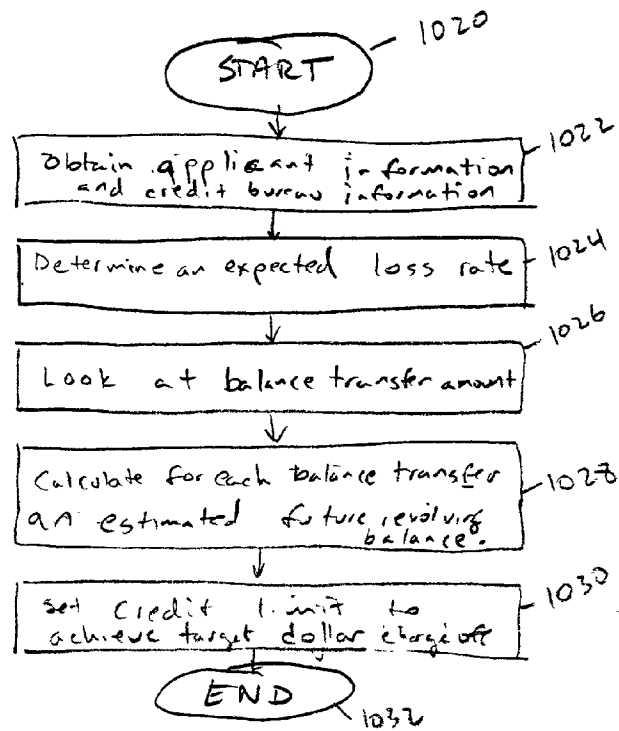 1020
START
1022
Obtain applicant information
and credit bureau information
Determine an expected loss rate
1024
1026
Look at balance transfer amount
Calculate for each balance transfer
an estimated future revolving
balance.
1028
1030
set credit limit to
achieve target dollar charge off
END
1032